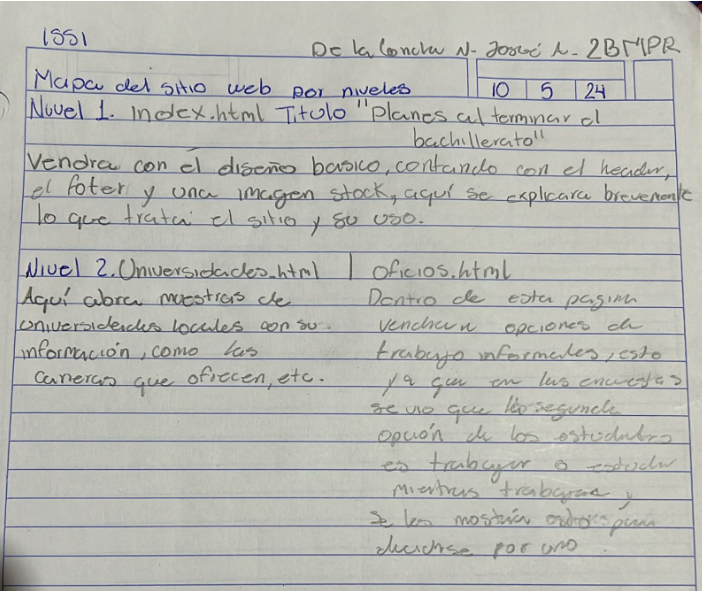 ISSI
De la Concha N. Josué A. 2BMPR
Mapa del sitio web por niveles 10 5 24
Nivel 1. index.html Titulo "Planes al terminar el
bachillerato"
Vendra con el diseño basico, contando con el header,
el foter y una imagen stock, aquí se explicara brevemente
lo que trata el sitio y su uso.
Nivel 2. Universidades.html | Oficios.html
Aquí abra muestras de
universidades locales con su
información, como las
carreras que ofrecen, etc.
Dentro de esta pagina
vendran opciones de
trabajo informales, esto
ya que en las encuestas
se vio que la segunda
opción de los estudiantes
es trabajar o estudiar
mientras trabajan y
se les mostrán para
decidirse por uno.